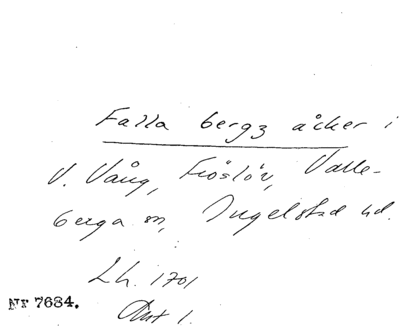 Falla bergz åcker i
V. Vång, Fröslöv, Valle-
berga sn, Ingelstad hd.
Lh. 1701
Akt 1.
Nr 7684.